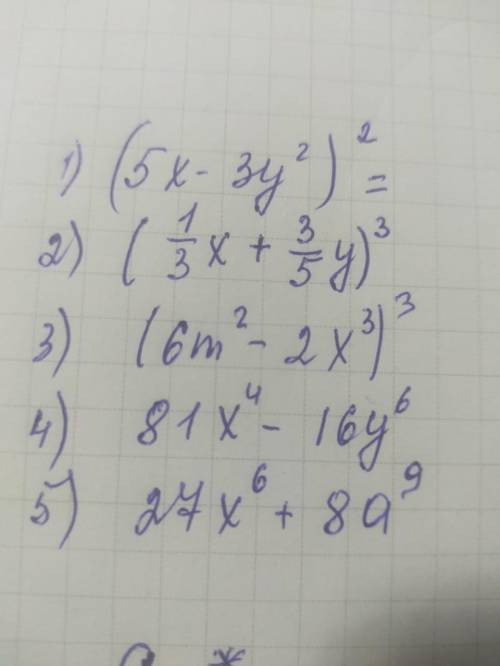 1) (5x - 3y²)² =
2) (1/3 x + 3/5 y)³
3) (6m² - 2x³)³
4) 81x⁴ - 16y⁶
5) 27x⁶ + 8a⁹